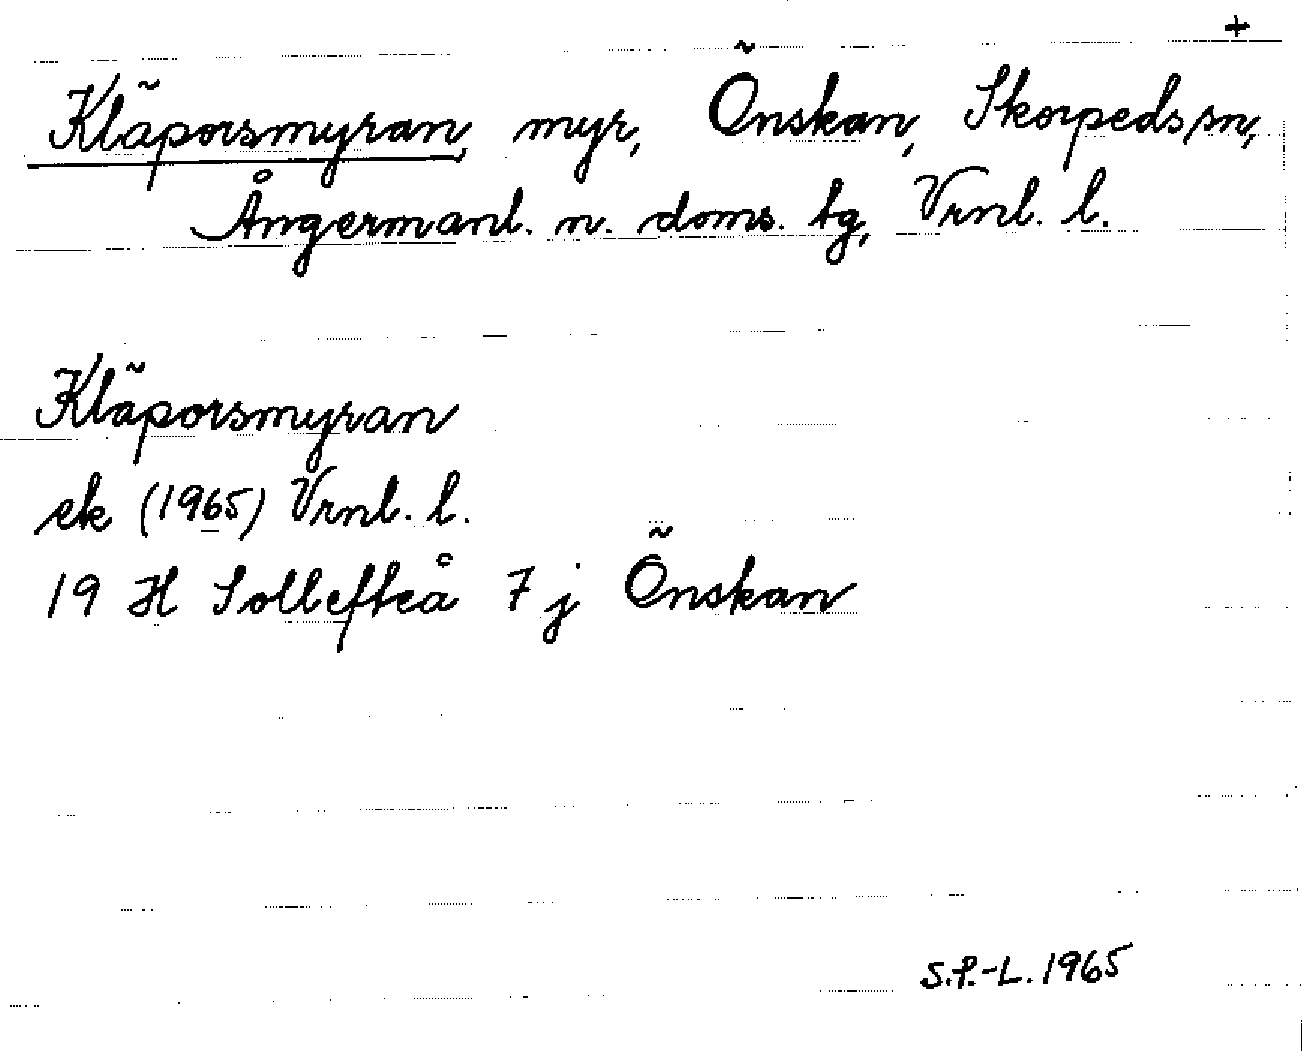 +
Kläporsmyran, myr, Önskan, Skorpeds sn,
Ångermanl. n. doms. tg, Vrnl. l.
Kläporsmyran
ek (1965) Vrnl. l.
19 H Sollefteå 7 j Önskan
S.P.-L. 1965